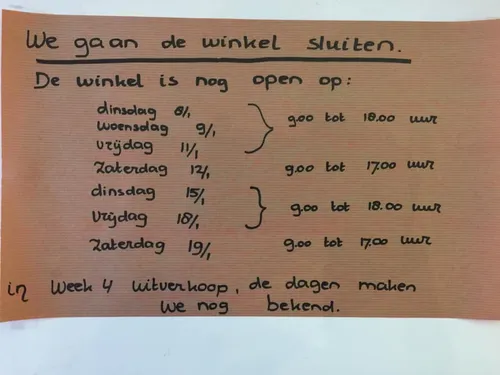 We gaan de winkel sluiten.
De winkel is nog open op:
dinsdag 8/1
woensdag 9/1 9.00 tot 18.00 uur
vrijdag 11/1
zaterdag 12/1 9.00 tot 17.00 uur
dinsdag 15/1
vrijdag 18/1 9.00 tot 18.00 uur
zaterdag 19/1 9.00 tot 17.00 uur
in week 4 uitverkoop, de dagen maken
we nog bekend.